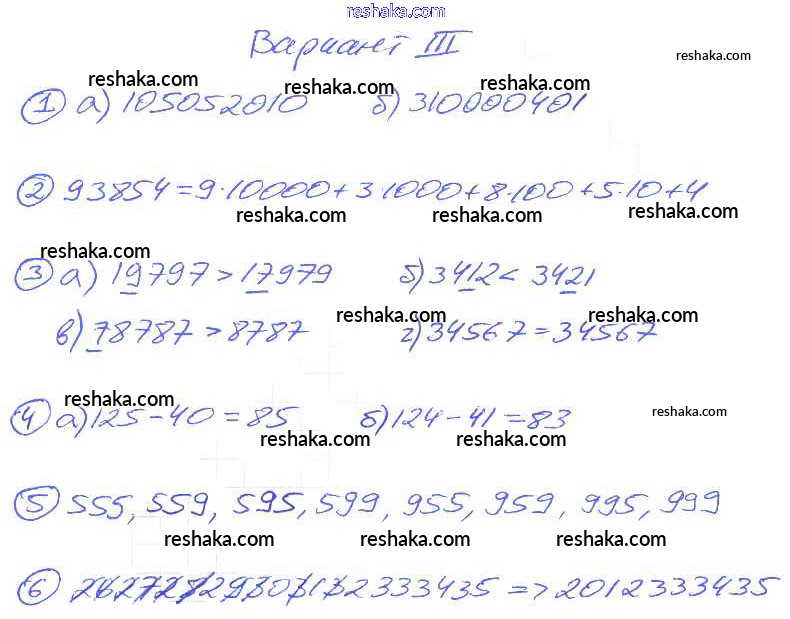 reshaka.com
Вариант III
reshaka.com
reshaka.com reshaka.com reshaka.com
① а) 105052010 б) 310000401
② 93854 = 9·10000 + 3·1000 + 8·100 + 5·10 + 4
reshaka.com reshaka.com reshaka.com
reshaka.com
③ а) 19797 > 17979 б) 3412 < 3421
reshaka.com reshaka.com
в) 78787 > 8787 г) 34567 = 34567
reshaka.com reshaka.com
④ а) 125 - 40 = 85 б) 124 - 41 = 83
reshaka.com reshaka.com
⑤ 555, 559, 595, 599, 955, 959, 995, 999
reshaka.com reshaka.com reshaka.com
⑥ 26272829303132333435 => 2012333435